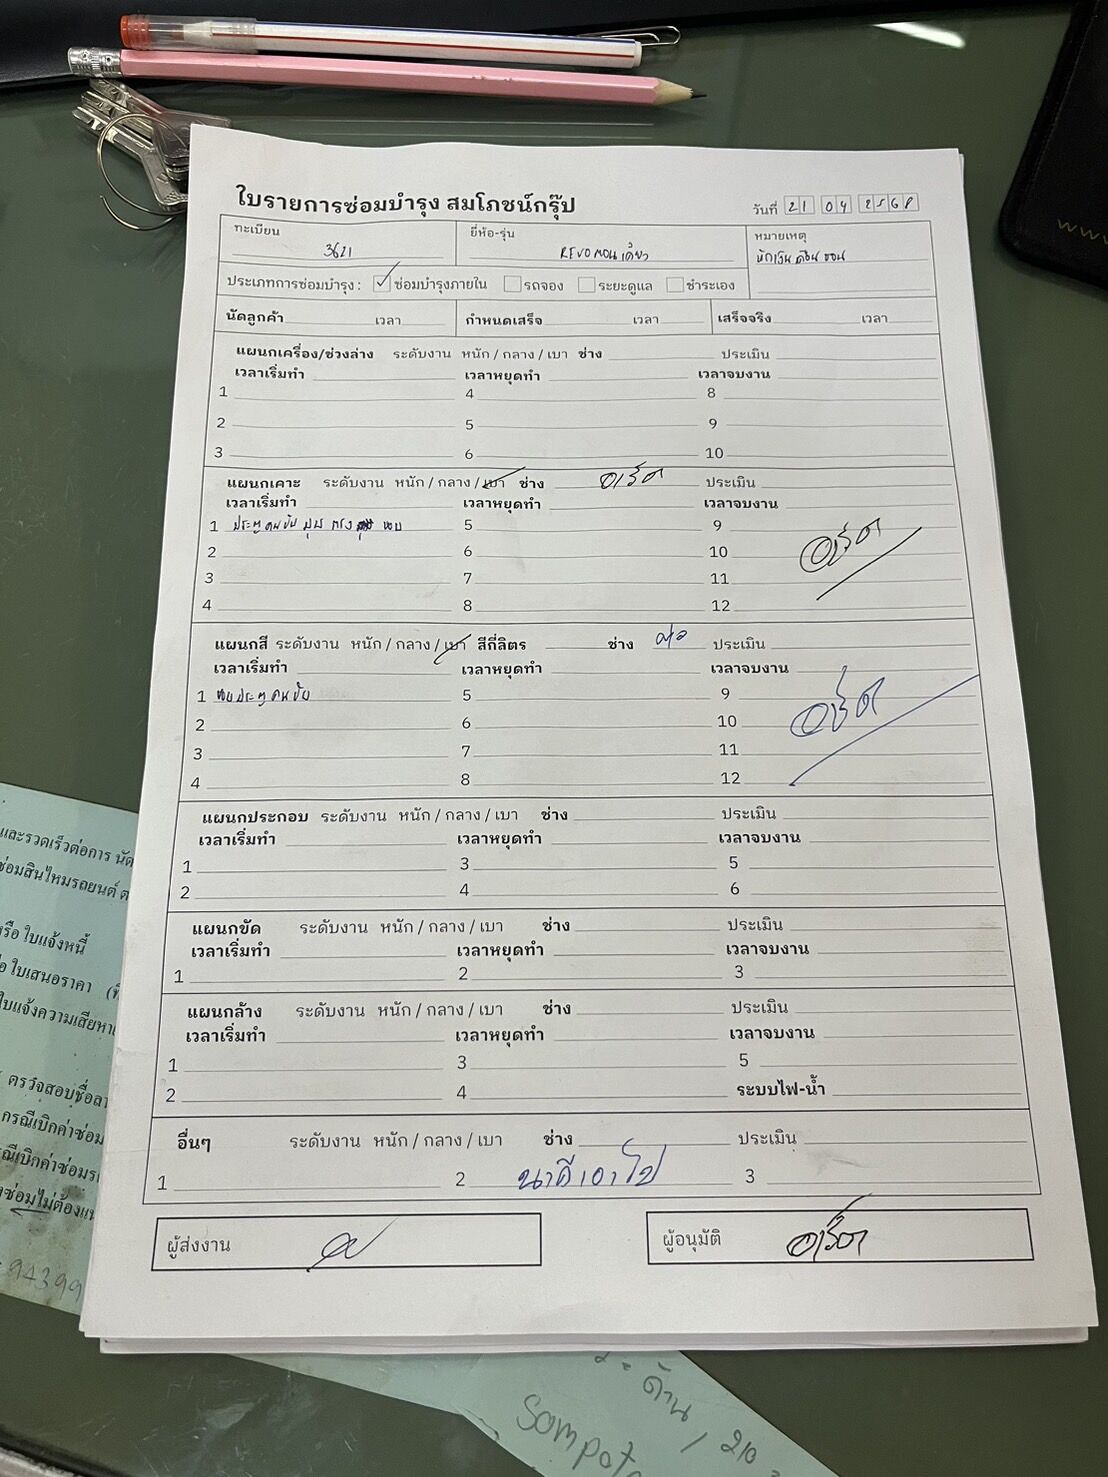 ใบรายการซ่อมบำรุง สมโภชน์กรุ๊ป
วันที่ 21 04 2568
ทะเบียน 3621
ยี่ห้อ-รุ่น REVO ตอนเดียว
หมายเหตุ
หักเงินเดือน
ประเภทการซ่อมบำรุง : ✓ ซ่อมบำรุงภายใน รถจอง ระยะดูแล ชำระเอง
นัดลูกค้า เวลา กำหนดเสร็จ เวลา เสร็จจริง เวลา
แผนกเครื่อง/ช่วงล่าง ระดับงาน หนัก / กลาง / เบา ช่าง ประเมิน
เวลาเริ่มทำ เวลาหยุดทำ เวลาจบงาน
1 4 8
2 5 9
3 6 10
แผนกเคาะ ระดับงาน หนัก / กลาง / เบา ช่าง อาร์ต ประเมิน
เวลาเริ่มทำ เวลาหยุดทำ เวลาจบงาน
1 ประตูคนขับ บุบ ตรง 5 9
2 6 10 อาร์ต
3 7 11
4 8 12
แผนกสี ระดับงาน หนัก / กลาง / เบา สีกี่ลิตร ช่าง ประเมิน
เวลาเริ่มทำ เวลาหยุดทำ เวลาจบงาน
1 ประตูคนขับ 5 9
2 6 10 อาร์ต
3 7 11
4 8 12
แผนกประกอบ ระดับงาน หนัก / กลาง / เบา ช่าง ประเมิน
เวลาเริ่มทำ เวลาหยุดทำ เวลาจบงาน
1 3 5
2 4 6
แผนกขัด ระดับงาน หนัก / กลาง / เบา ช่าง ประเมิน
เวลาเริ่มทำ เวลาหยุดทำ เวลาจบงาน
1 2 3
แผนกล้าง ระดับงาน หนัก / กลาง / เบา ช่าง ประเมิน
เวลาเริ่มทำ เวลาหยุดทำ เวลาจบงาน
1 3 5
2 4 ระบบไฟ-น้ำ
อื่นๆ ระดับงาน หนัก / กลาง / เบา ช่าง ประเมิน
1 2 นาคีเอาไป 3
ผู้ส่งงาน
ผู้อนุมัติ อาร์ต
และรวดเร็วต่อการ นัด
ซ่อมสินไหมรถยนต์ ต
หรือ ใบแจ้งหนี้
ใบเสนอราคา
ใบแจ้งความเสียหา
ตรวจสอบชื่อ
กรณีเบิกค่าซ่อม
ณีเบิกค่าซ่อมร
ซ่อมไม่ต้อง
94399
ด้าน / 210
sompot